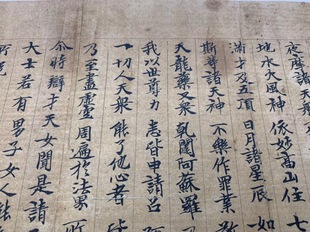 摩諸天
地水火風神 依妙高山住 七
滿才及五頂 日月諸星辰 如
斯等諸天神 不樂作罪業
天龍藥叉衆 乹闥阿蘇羅
我以世尊力 悉皆申請召
一切人天衆 能了他心者 皆
乃至盡虛空 周遍於法界 所
尒時辯才天女聞是請
大士若有男子女人能